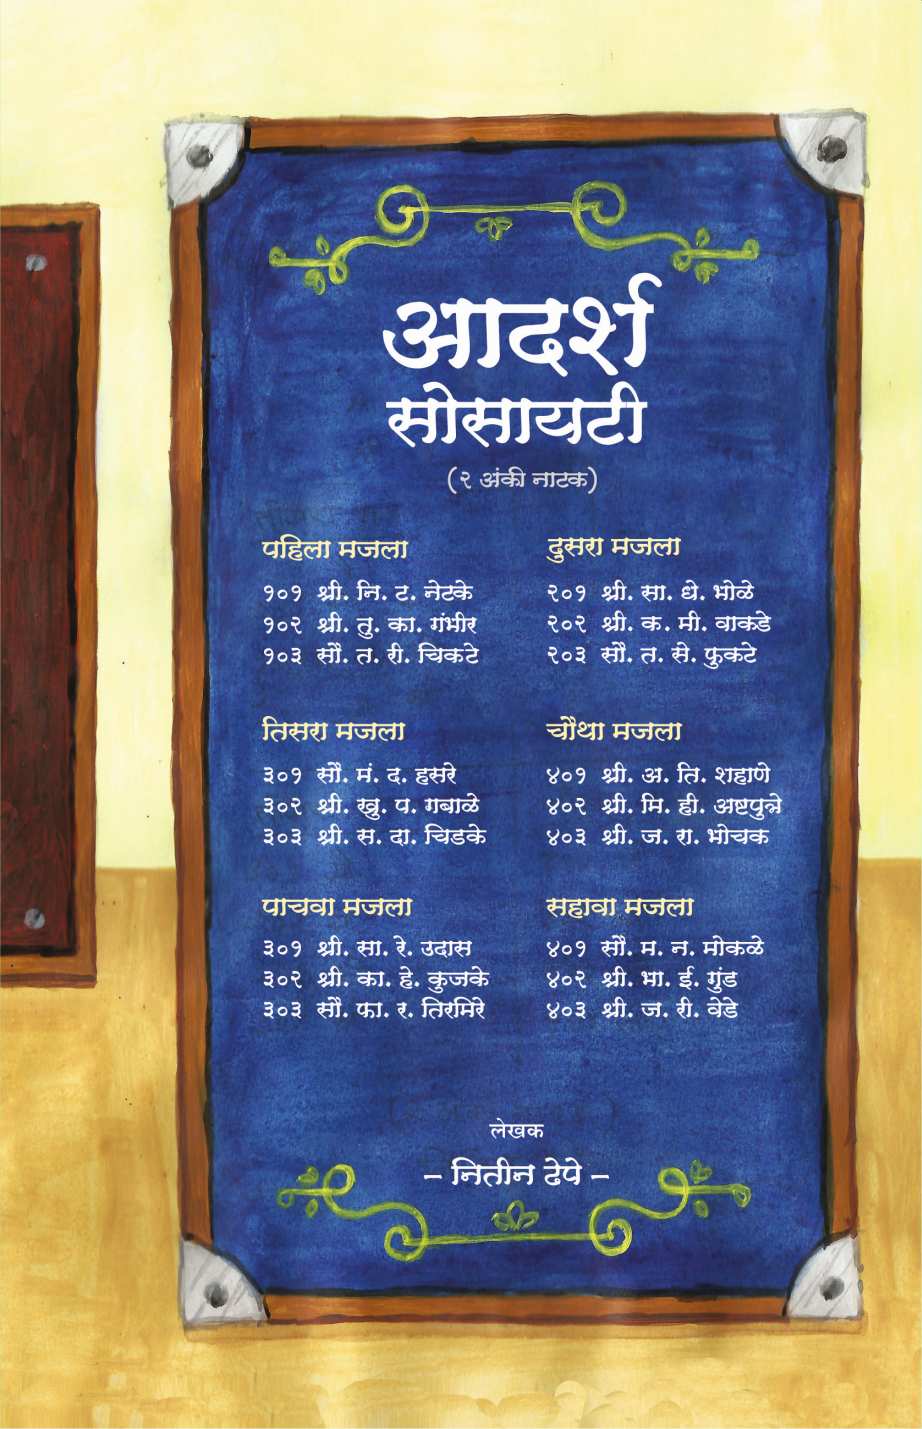 आदर्श
सोसायटी
(२ अंकी नाटक)
पहिला मजला
१०१ श्री. नि. ट. नेटके
१०२ श्री. तु. का. गंभीर
१०३ सौ. त. री. चिकटे
दुसरा मजला
२०१ श्री. सा. धे. भोळे
२०२ श्री. क. मी. वाकडे
२०३ सौ. त. से. फुकटे
तिसरा मजला
३०१ सौ. मं. द. हसरे
३०२ श्री. खु. प. गबाळे
३०३ श्री. स. दा. चिडके
चौथा मजला
४०१ श्री. अ. ति. शहाणे
४०२ श्री. मि. ही. अष्टपुत्रे
४०३ श्री. ज. रा. भोचक
पाचवा मजला
३०१ श्री. सा. रे. उदास
३०२ श्री. का. हे. कुजके
३०३ सौ. फा. र. तिरमिरे
सहावा मजला
४०१ सौ. म. न. मोकळे
४०२ श्री. भा. ई. गुंड
४०३ श्री. ज. री. वेडे
लेखक
– नितीन ढेपे –